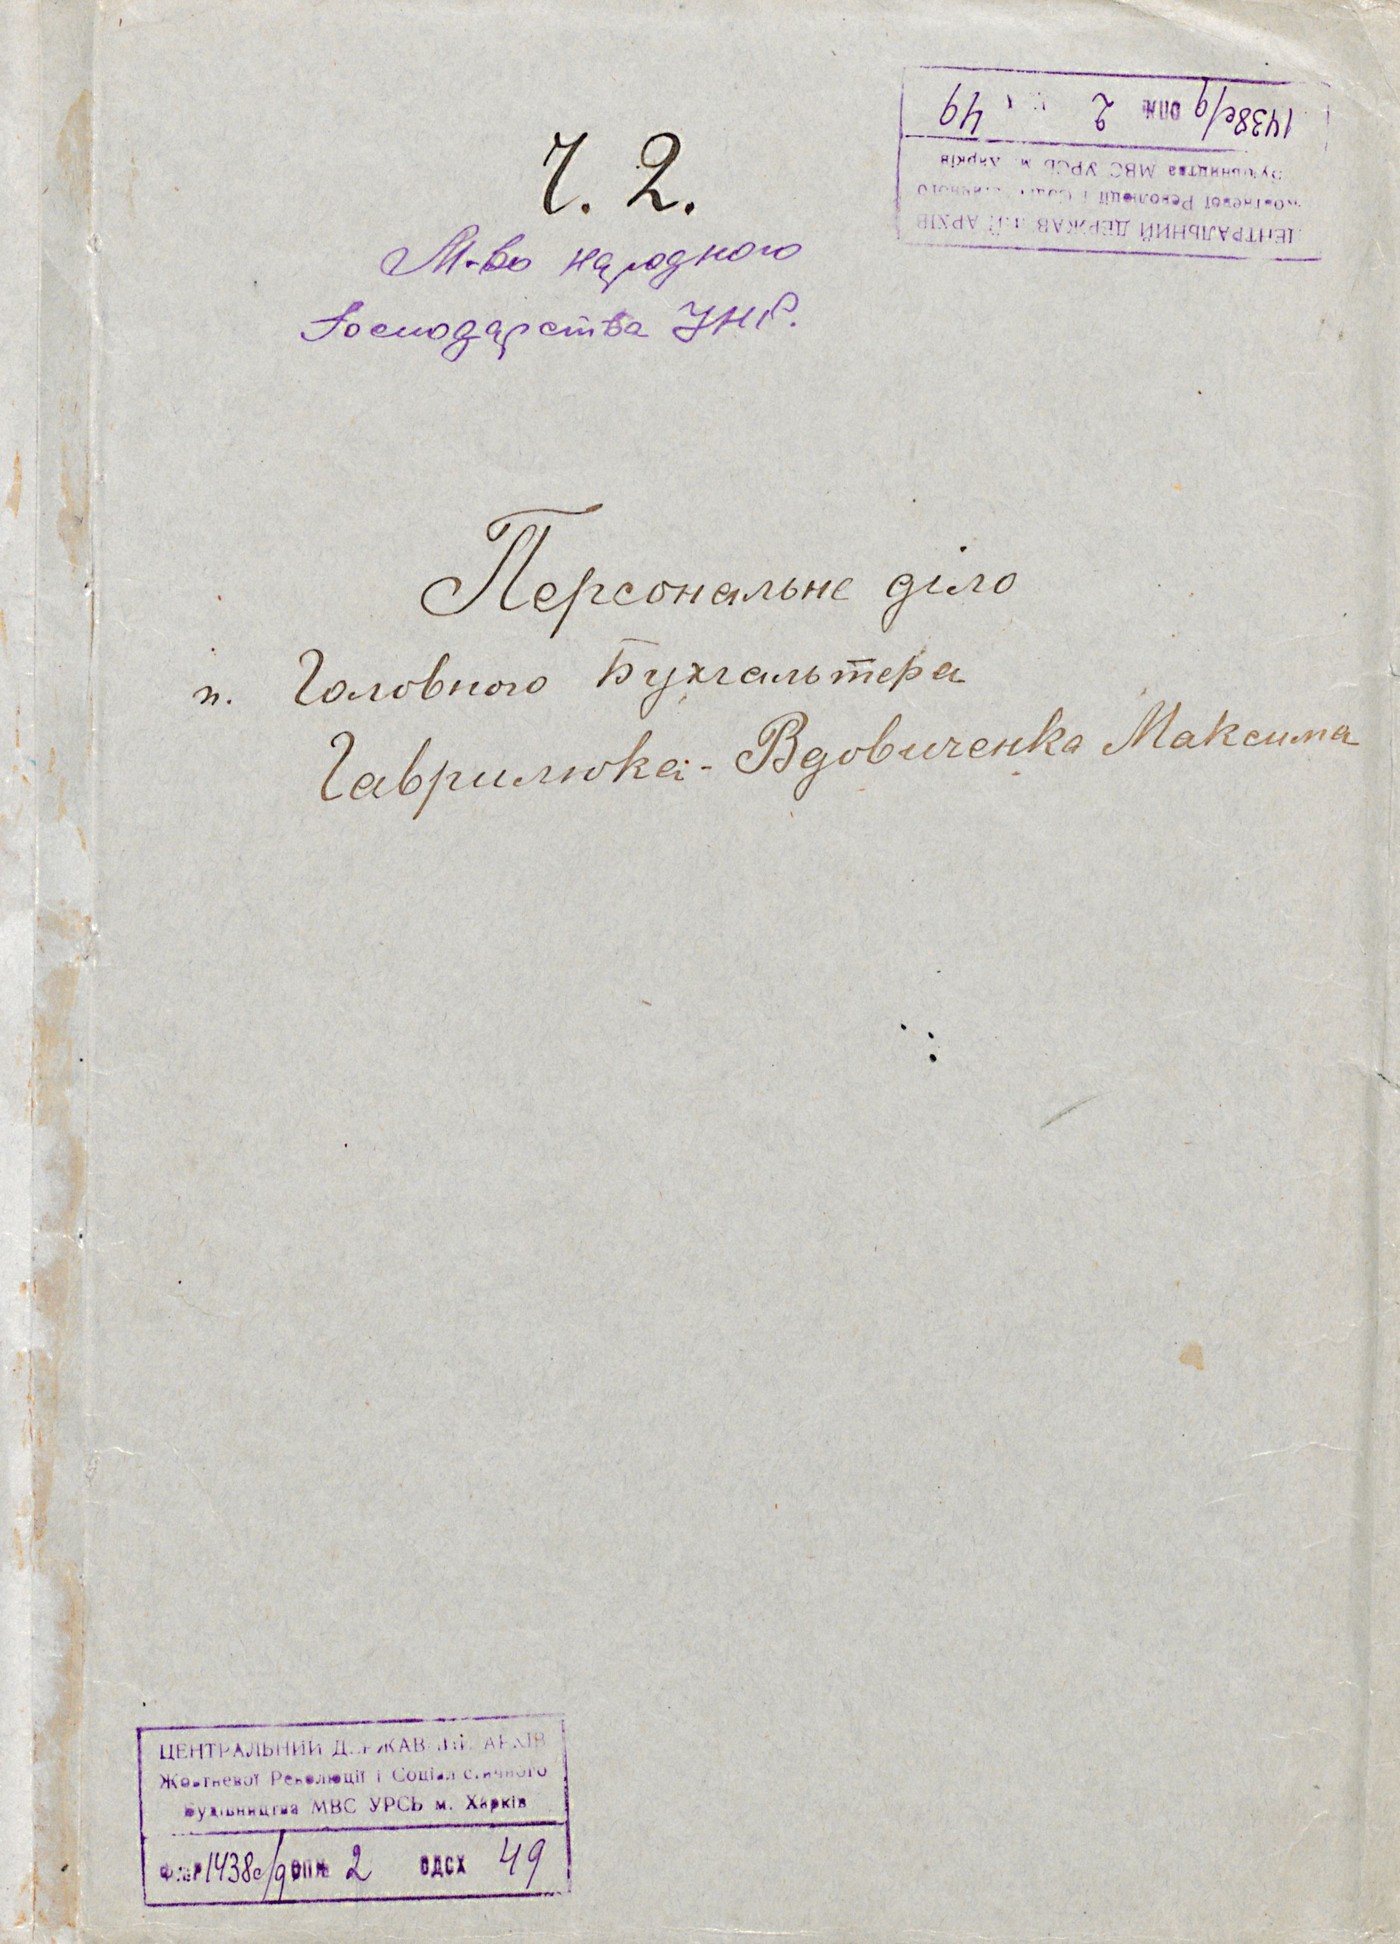 1438с/д оп.№ 2 49
ЦЕНТРАЛЬНИЙ ДЕРЖАВНИЙ АРХІВ
Жовтневої Революції і Соціалістичного
Будівництва МВС УРСЬ м. Харків
Ч. 2.
М-во народного
Господарства УНР.
Персональне діло
п. Головного Бухгальтера
Гаврилюка-Вдовиченка Максима
ЦЕНТРАЛЬНИЙ ДЕРЖАВНИЙ АРХІВ
Жовтневої Революції і Соціалістичного
Будівництва МВС УРСЬ м. Харків
Ф.№Р1438с/д оп.№ 2 ОДСХ 49